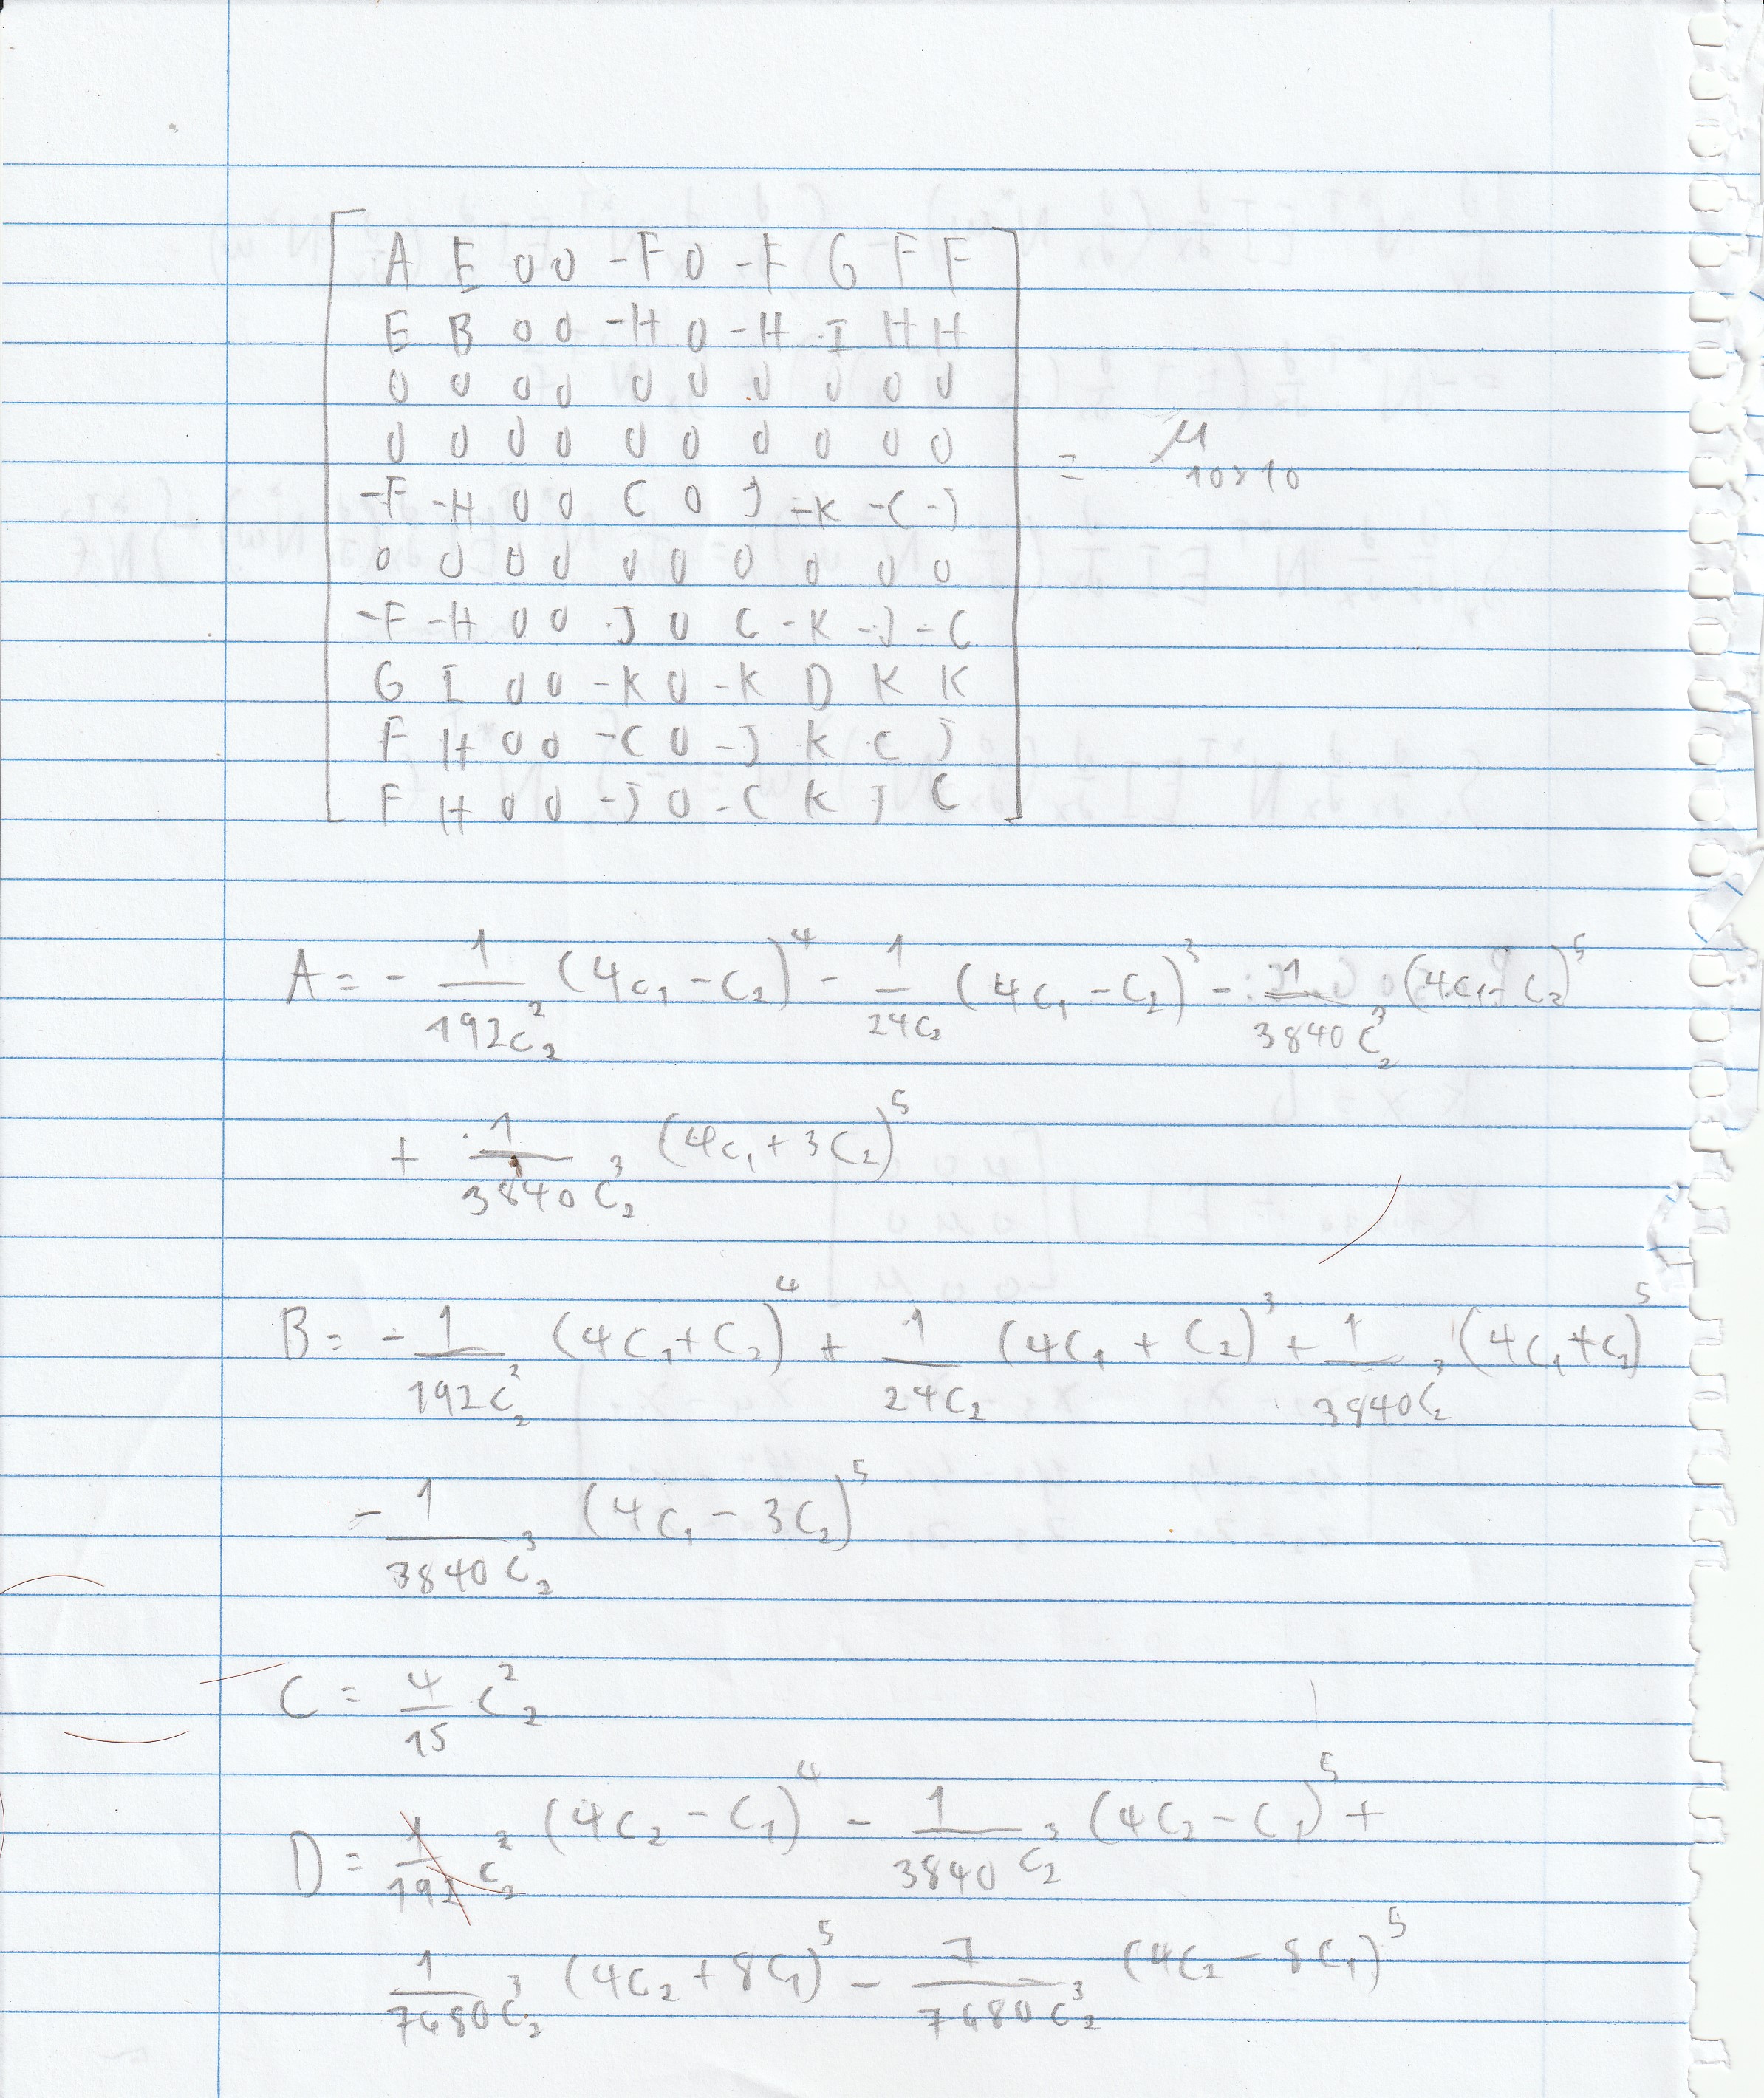 A E 0 0 -F 0 -F G F F
E B 0 0 -H 0 -H I H H
0 0 0 0 0 0 0 0 0 0
0 0 0 0 0 0 0 0 0 0
-F -H 0 0 C 0 J -K -C -J
= μ 10x10
0 0 0 0 0 0 0 0 0 0
-F -H 0 0 J 0 C -K -J -C
G I 0 0 -K 0 -K D K K
F H 0 0 -C 0 -J K C J
F H 0 0 -J 0 -C K J C
A = - 1/192c₂² (4c₁ - c₂)⁴ - 1/24c₂ (4c₁ - c₂)³ - 1/3840c₂³ (4c₁ - c₂)⁵
+ 1/3840c₂³ (4c₁ + 3c₂)⁵
B = - 1/192c₂² (4c₁ + c₂)⁴ + 1/24c₂ (4c₁ + c₂)³ + 1/3840c₂³ (4c₁ + c₂)⁵
- 1/3840c₂³ (4c₁ - 3c₂)⁵
C = 4/15 c₂²
D = 1/192c₂² (4c₂ - c₁)⁴ - 1/3840c₂³ (4c₂ - c₁)⁵ +
1/7680c₂³ (4c₂ + 8c₁)⁵ - 1/7680c₂³ (4c₂ - 8c₁)⁵